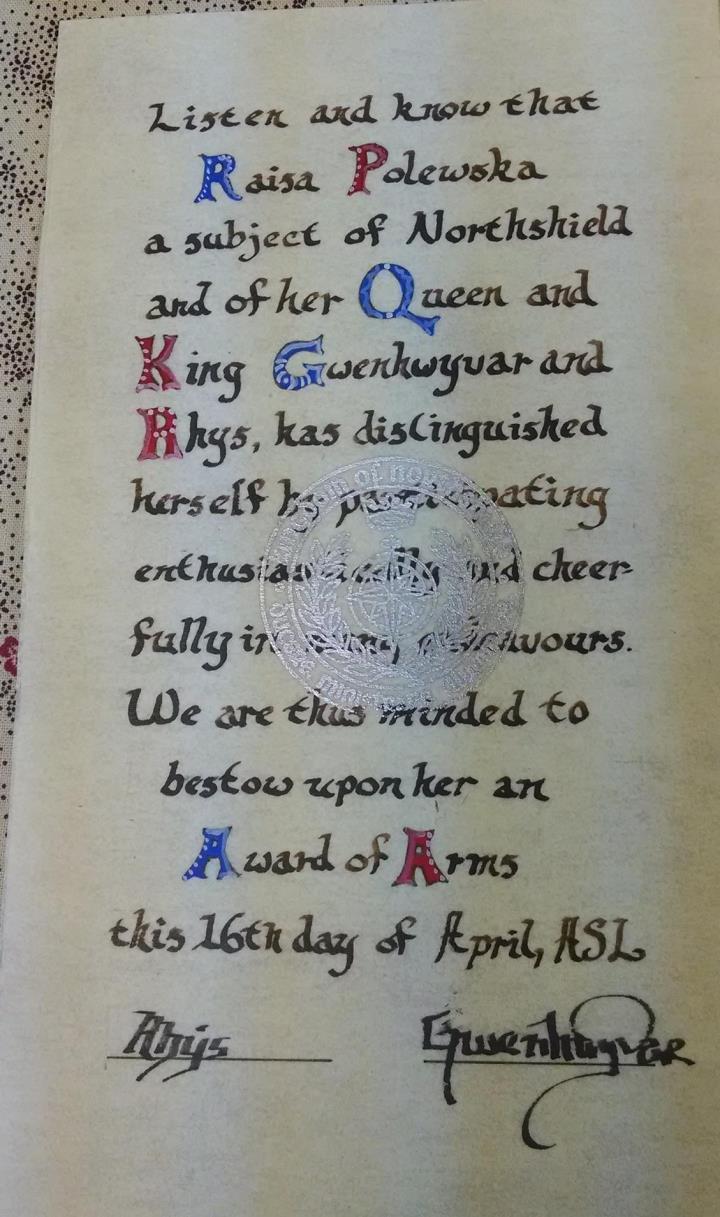 Listen and know that
Raisa Polewska
a subject of Northshield
and of her Queen and
King Gwenhwyvar and
Rhys, has distinguished
herself by participating
enthusiastically and cheer-
fully in many endeavours.
We are thus minded to
bestow upon her an
Award of Arms
this 16th day of April, ASL
Rhys Gwenhwyvar